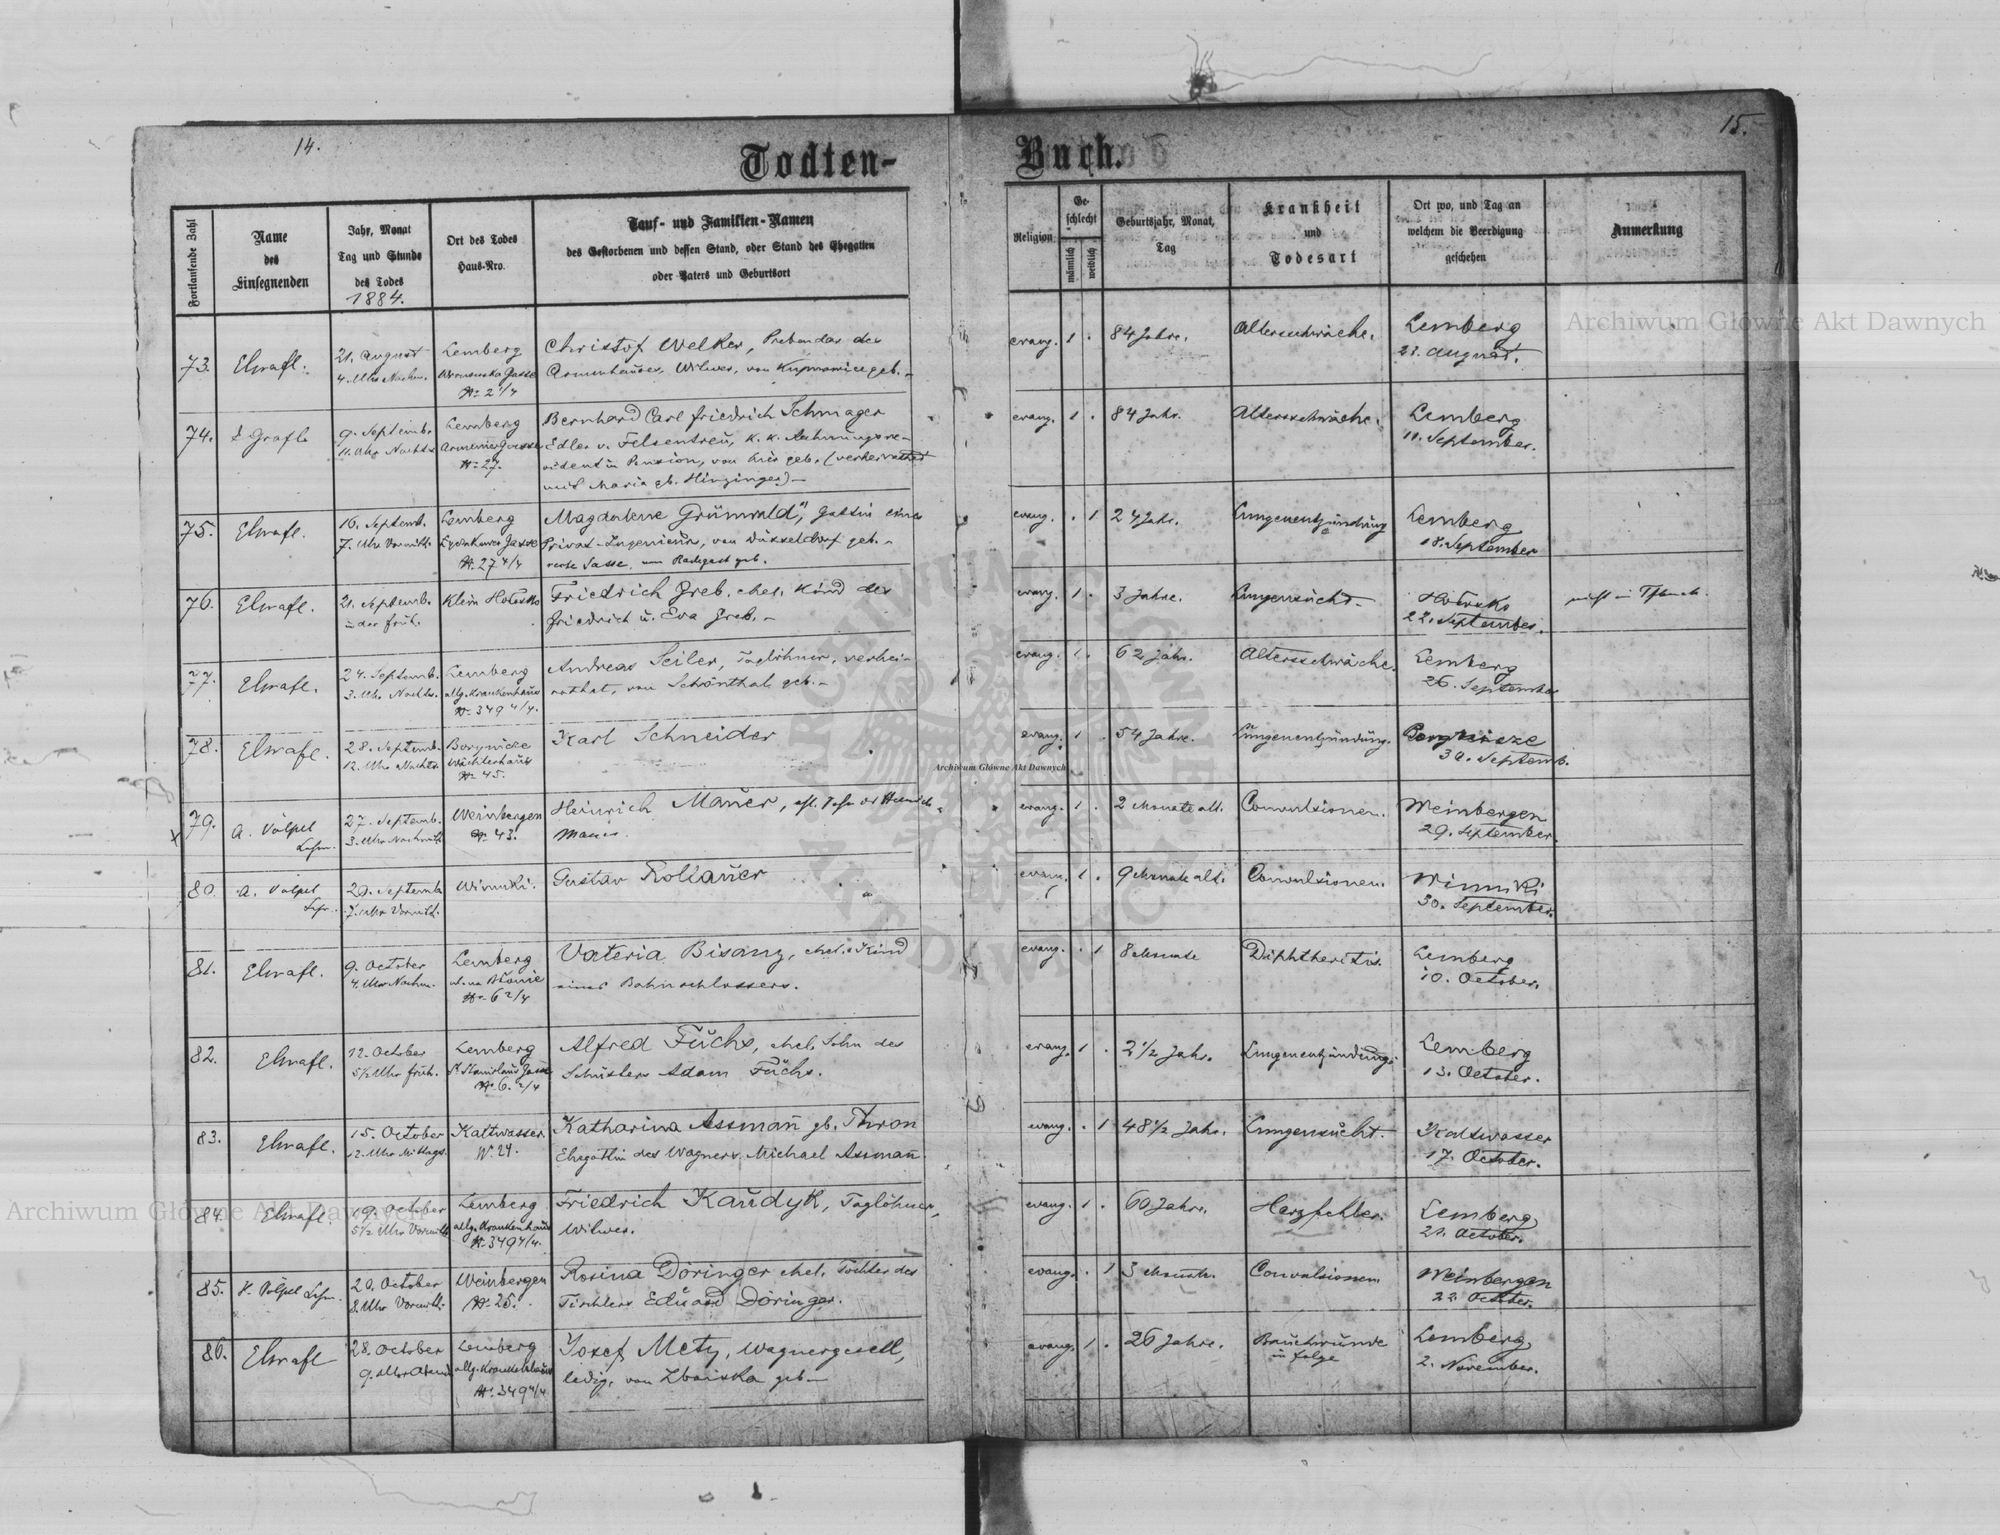 14.
15.
Todten-Buch.
Fortlaufende Zahl
Name
des
Einsegnenden
Jahr, Monat
Tag und Stunde
des Todes
1884.
Ort des Todes
Haus-Nro.
Tauf- und Familien-Namen
des Gestorbenen und dessen Stand, oder Stand des Ehegatten
oder Vaters und Geburtsort
Religion
Ge-
schlecht
männlich
weiblich
Geburtsjahr, Monat,
Tag
Krankheit
und
Todesart
Ort wo, und Tag an
welchem die Beerdigung
geschehen
Anmerkung
73.
21. August
4. Uhr Nachm.
Lemberg
Gasse
No 2 1/4
Christof Welker, Prebendar des
Armenhauses, Witwer, von
evang. 1 .
84 Jahre.
Altersschwäche.
Lemberg
23. August.
74.
9. Septemb.
11. Uhr Nachts
Lemberg
No 27.
Bernhard Carl Friedrich Schmager
Edler v. Felsentreu, k. k. Rechnungsre-
vident in Pension, von hier geb. (verheirathet
mit Maria gb. Hinzinger) –
evang. 1 .
84 Jahr.
Altersschwäche.
Lemberg
11. September.
75.
16. Septemb.
7. Uhr Vormitt.
Lemberg
Gasse
No 27 4/4
Magdalene Grünwald, Gattin eines
Privat-Ingenieurs, von Düsseldorf geb. –
geb.
evang. . 1
24 Jahr.
Lungenentzündung
Lemberg
18. September
76.
21. Septemb.
in der Früh.
Klein Hołosko
Friedrich Greb, ehel. Kind des
Friedrich u. Eva Greb. –
evang. 1 .
3 Jahre.
Lungensucht.
Hołosko
22. September.
77.
24. Septemb.
3. Uhr Nachts.
Lemberg
allg. Krankenhaus
No 349 4/4.
Andreas Seiler, Taglöhner, verhei-
rathet, von Schönthal geb. –
evang. 1 .
62 Jahr.
Altersschwäche.
Lemberg
26. September
78.
28. Septemb.
12. Uhr Nachts.
Borynicze
Wächterhaus
No 45.
Karl Schneider
evang. 1 .
54 Jahre.
Lungenentzündung.
Borynicze
30. Septemb.
79.
A. Völpel
Lehrer
27. Septemb.
3. Uhr Nachmitt.
Weinbergen
No 43.
Heinrich Mauer,
Mauer.
evang. 1 .
2 Monate alt.
Convulsionen.
Weinbergen
29. September.
80.
A. Völpel
29. Septemb
7. Uhr Vormitt.
Winniki.
Gustav Kollauer
evang. 1 .
9 Monate alt.
Convulsionen.
Winniki
30. September.
81.
9. October
4. Uhr Nachm.
Lemberg
ul. na Błonie
No 6 2/4
Valeria Bisanz, ehel. Kind
eines Bahnschlossers.
evang. . 1
8 Monate
Diphtheritis.
Lemberg
10. October.
82.
12. October
5 1/2 Uhr früh.
Lemberg
St. Stanislaus Gasse
No 6. 2/4
Alfred Fuchs, ehel. Sohn des
Schusters Adam Fuchs.
evang. 1 .
2 1/2 Jahr.
Lungenentzündung.
Lemberg
13. October.
83.
15. October
12. Uhr Mittags.
Kaltwasser.
No 24.
Katharina Assmañ gb. Thron
Ehegattin des Wagners Michael Assmañ.
evang. . 1
48 1/2 Jahr.
Lungensucht.
Kaltwasser
17. October.
84.
19. October
5 1/2 Uhr Vormitt.
Lemberg
allg. Krankenhaus
No 349 4/4.
Friedrich Kaudyk, Taglöhner,
Witwer.
evang. 1 .
60 Jahre.
Herzfehler.
Lemberg,
21. October.
85.
Völpel
20. October
8. Uhr Vormitt.
Weinbergen
No 25.
Rosina Döringer ehel. Tochter des
Tischlers Eduard Döringer.
evang. . 1
3 Monate.
Convulsionen
Weinbergen
22. October.
86.
28. October
9. Uhr Abend
Lemberg
allg. Krankenhaus
No 349 4/4
Josef Metz, Wagnergesell,
ledig, von Zboiska geb. –
evang. 1 .
26 Jahre.
Bauchwunde
in folge
Lemberg,
2. November.
Archiwum Główne Akt Dawnych
Archiwum Główne Akt Dawnych
Archiwum Główne Akt Dawnych
ARCHIWUM GŁÓWNE AKT DAWNYCH